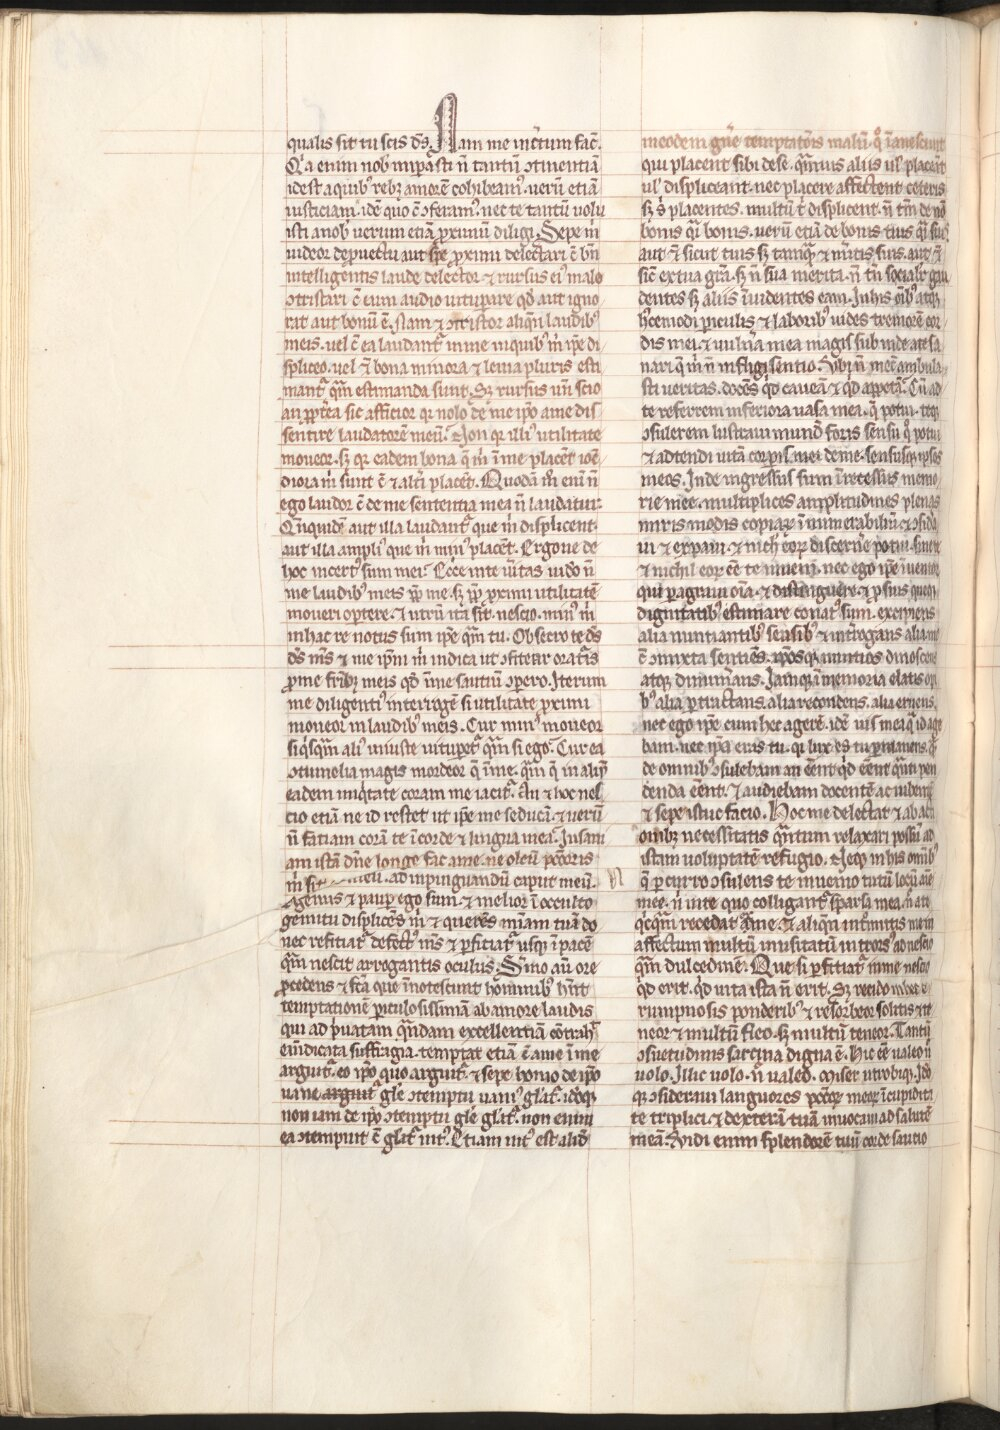 qualis sit tu scis d̄s. Nam me inc̄tum fac̄.
Q̇a enim nob̄ imꝑasti n̄ tantū ↄtinentiā
idest a quibꝰ rebꝫ amorē cohibeamꝰ. uerū etiā
iusticiam. idē quo ē ↄferamꝰ. nec te tantū uolu
isti a nob̄ uerum etiā ꝓximū diligi. Sepe m̄
uideor de ꝓuectu aut spe ꝓximi delectari c̄ bn̄
intelligentis laude delector ⁊ rursus eiꝰ malo
ↄtristari c̄ eum audio uituꝑare qd̄ aut igno
rat aut bonū ē. Nam ⁊ ↄtristor aliqn̄ laudibꝰ
meis. uel c̄ ea laudant᷑ in me in quibꝰ m̄ ip̄e di
spliceo. uel ⁊ bona minora ⁊ leuia pluris esti
mant᷑ qm̄ estimanda sunt. Sꝫ rursus un̄ scio
an ꝓpt̄ea sic afficior qꝛ nolo de me ip̄o a me dis
sentire laudatorē meū. Non qꝛ illiꝰ utilitate
moueor. sꝫ qꝛ eadem bona q̄ m̄ i me placēt iocū
diora m̄ sunt c̄ ⁊ alt̄i placēt. Quodā m̄ eni n̄
ego laudor c̄ de me sententia mea n̄ laudatur.
Qn̄quidē aut illa laudant᷑ que m̄ displicent.
aut illa ampliꝰ que m̄ minꝰ placēt. Ergo ne de
hoc incertꝰ sum mei. Ecce in te u̅itas uido n̄
me laudibꝰ meis ꝓp̄ me. sꝫ ꝓp̄ ꝓximi utilitatē
moueri optere. ⁊ utrū ita sit. nescio. minꝰ m̄
in hac re notus sum ip̄e qm̄ tu. Obsecro te d̄s
d̄s m̄s ⁊ me ip̄m m̄ indica ut ↄfitear oratīs
ꝓ me fr̄ibꝫ meis qd̄ i me sautiū ↄpero. Iterum
me diligentiꝰ interrogē si utilitate ꝓximi
moueor in laudibꝰ meis. Cur minꝰ moueor
si qisqm̄ aliꝰ iniuste uituꝑet᷑ qm̄ si ego. Cur ea
ↄtumelia magis mordeor q̄ i me. qm̄ q̄ in aliū
eadem iniq̇tate coram me iacit᷑. An ⁊ hoc nes
cio etiā ne id restet ut ip̄e me seducā. ⁊ uerū
n̄ fatiam corā te i corde ⁊ lingua mea. Insani
am istā dn̄e longe fac a me. ne oleū pctōris
m̄ sit mei. ad inpinguandū caput meū.
Egenus ⁊ paup̄ ego sum. ⁊ melior i occulto
gemitu displicēs m̄ ⁊ querēs miam tuā do
nec refitiat᷑ defectꝰ m̄s ⁊ ꝑfitiat᷑ usqꝫ i pacē
qm̄ nescit arrogantis oculus. Sermo aū ore
ꝓcedens ⁊ fc̄a que inotescunt hominibꝰ hn̄t
temptationē ꝑiculosissimā ab amore laudis
qui ad p̄uatam qn̄dam excellentiā contrah̄
emdicata suffragia. temptat etiā c̄ a me i me
arguit᷑. eo ip̄o quo arguit᷑. ⁊ sepe homo de ip̄o
uane arguit᷑ gl̄e ↄtemptu uaniꝰ gl̄at᷑. ideoqꝫ
non iam de ip̄o ↄtemptu gl̄e gl̄at᷑. non enim
ea ↄtempnit c̄ gl̄at᷑ intꝰ. Etiam intꝰ est aliud
in eodem gn̄e temptatōis malū. q̇ ianescunt
qui placent sibi de se. qm̄uis aliis ul̄ placeāt
ul̄ displiceant. nec placere affectent ceteris
sꝫ s̄ placentes. multū t̄ displicent. n̄ tm̄ de nō
bonis qi bonis. uerū etiā de bonis tuis qi suis
aut ⁊ sicut tuis sꝫ tamqꝫ ex m̄itis suis. aut ⁊
sic̄ ex tua gr̄a. sꝫ n̄ sua merita. n̄ tn̄ socialit̄ gau
dentes sꝫ aliis inuidentes eam. In his oībꝰ atqꝫ
hꝰcemodi ꝑiculis ⁊ laboribꝰ uides tremorē cor
dis mei. ⁊ uuln̄a mea magis subinde a te sa
nari q̄ m̄ n̄ infligi sentio. Vbi n̄ mec̄ ambula
sti ueritas. docēs qd̄ caueā ⁊ qd̄ appetā. c̄ ad
te referrem inferiora uasa mea. q̄ potui. teqꝫ
ↄsulerem lustraui mund̄ foris sensu q̇ potui
⁊ adtendi uitā corꝑis mei de me. sensusqꝫ ip̄sos
meos. Inde ingressus sum i recessus memo
rie mee. multiplices amplitudines plenas
miris modis copiarꝫ inumerabiliū. ⁊ ↄside
ui ⁊ expaui. ⁊ nich̄ eorꝫ discern̄e potui sine te
⁊ nichil eorꝫ ee te inueni. nec ego ip̄e inuentor
qui ꝑagraui oīa. ⁊ distinguere. ⁊ ꝓ suis quem
dignitatibꝰ estimare conatꝰ sum. excipiens
alia nuntiantibꝰ sensibꝰ ⁊ int̄rogans alia me
c̄ ↄmixta sentiēs. ip̄osqꝫ nuntios dinoscens
atqꝫ dinum̄ans. Iamqꝫ i memoria elatis op̄i
bꝰ alia ꝑtractans. alia recondens. alia eruens.
nec ego ip̄e cum hec agerē. idē uis mea q̄ id age
bam. nec ip̄a eras tu. qꝛ lux es tu ꝑmanens. q̄
de omnibꝰ ↄsulebam an eent qd̄ eent qn̄ti pen
denda eent. ⁊ audiebam docentē ac iubentē
⁊ sepe istuc facio. Hoc me delectat ⁊ ab acti
onibꝫ necessitatis qn̄tum relaxari possū ad
istam uoluptatē refugio. Neqꝫ in his omibꝰ
q̄ ꝑcurro ↄsulens te inuenio tutū locū aīe
mee. n̄ in te quo colligant᷑ sparsa mea. n̄ a te
qc̄qm̄ recedat a me. ⁊ aliqn̄ intmittis me in
affectum multū inusitatū introrsꝰ ad nescio
qm̄ dulcedinē. Que si ꝑfitiat᷑ in me nescio
qd̄ erit. qd̄ uita ista n̄ erit. Sꝫ recido
rumpnosis ponderibꝰ ⁊ resorbeor solitis ⁊ te
neor ⁊ multū fleo. sꝫ multū teneor. Tantū
ↄsuetudinis sarcina digna ē. hic ee ualeo n̄
uolo. Illic uolo. n̄ ualeo. Miser utrobiqꝫ. Ido
qꝫ ↄsideraui languores pctōrꝫ meorꝫ i cupidita
te triplici. ⁊ dexterā tuā inuocaui ad salutē
meā. Vidi enim splendorē tuū corde saucio